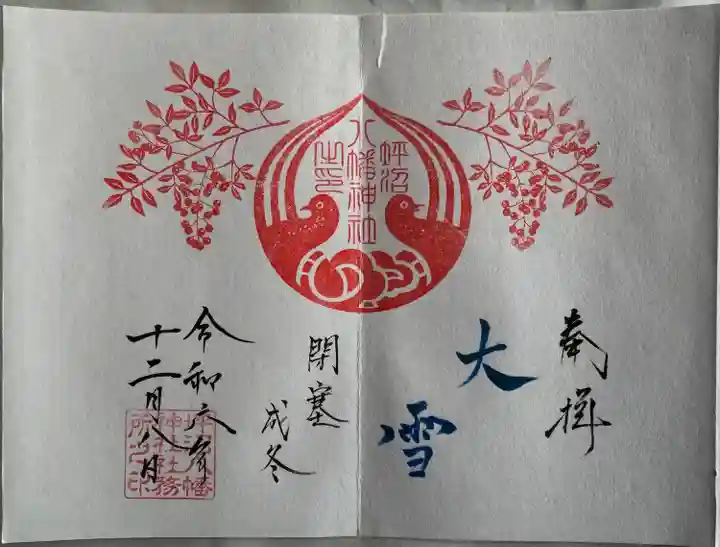 奉拝
大
雪
閉塞
成冬
令和六年
十二月八日
坪沼
八幡神社
之印
坪沼八幡
神社社務
所之印